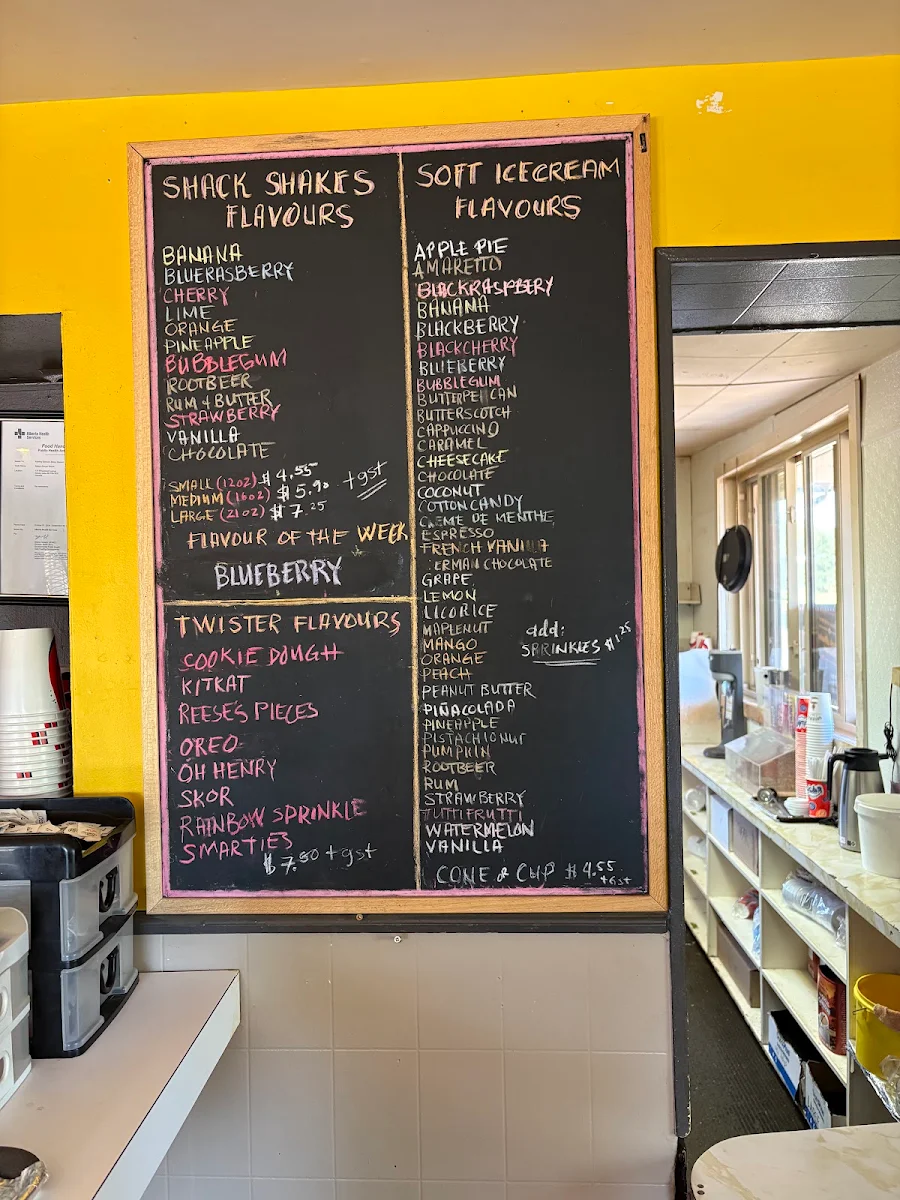 SHACK SHAKES
FLAVOURS
BANANA
BLUERASBERRY
CHERRY
LIME
ORANGE
PINEAPPLE
BUBBLEGUM
ROOTBEER
RUM & BUTTER
STRAWBERRY
VANILLA
CHOCOLATE
SMALL (12OZ) $4.55
MEDIUM (16OZ) $5.90 +gst
LARGE (21OZ) $7.25
FLAVOUR OF THE WEEK
BLUEBERRY
TWISTER FLAVOURS
COOKIE DOUGH
KITKAT
REESE'S PIECES
OREO
OH HENRY
SKOR
RAINBOW SPRINKLE
SMARTIES
$7.80 +gst
SOFT ICECREAM
FLAVOURS
APPLE PIE
AMARETTO
BLACKRASPBERY
BANANA
BLACKBERRY
BLACKCHERRY
BLUEBERRY
BUBBLEGUM
BUTTERPECAN
BUTTERSCOTCH
CAPPUCCINO
CARAMEL
CHEESECAKE
CHOCOLATE
COCONUT
COTTON CANDY
CREME DE MENTHE
ESPRESSO
FRENCH VANILLA
ERMAN CHOCOLATE
GRAPE
LEMON
LICORICE
MAPLENUT
MANGO
ORANGE
PEACH
PEANUT BUTTER
PIÑACOLADA
PINEAPPLE
PISTACHIONUT
PUMPKIN
ROOTBEER
RUM
STRAWBERRY
TUTTIFRUTTI
WATERMELON
VANILLA
add:
SPRINKLES $1.25
CONE & CUP $4.55
+Gst
Alberta Health
Services